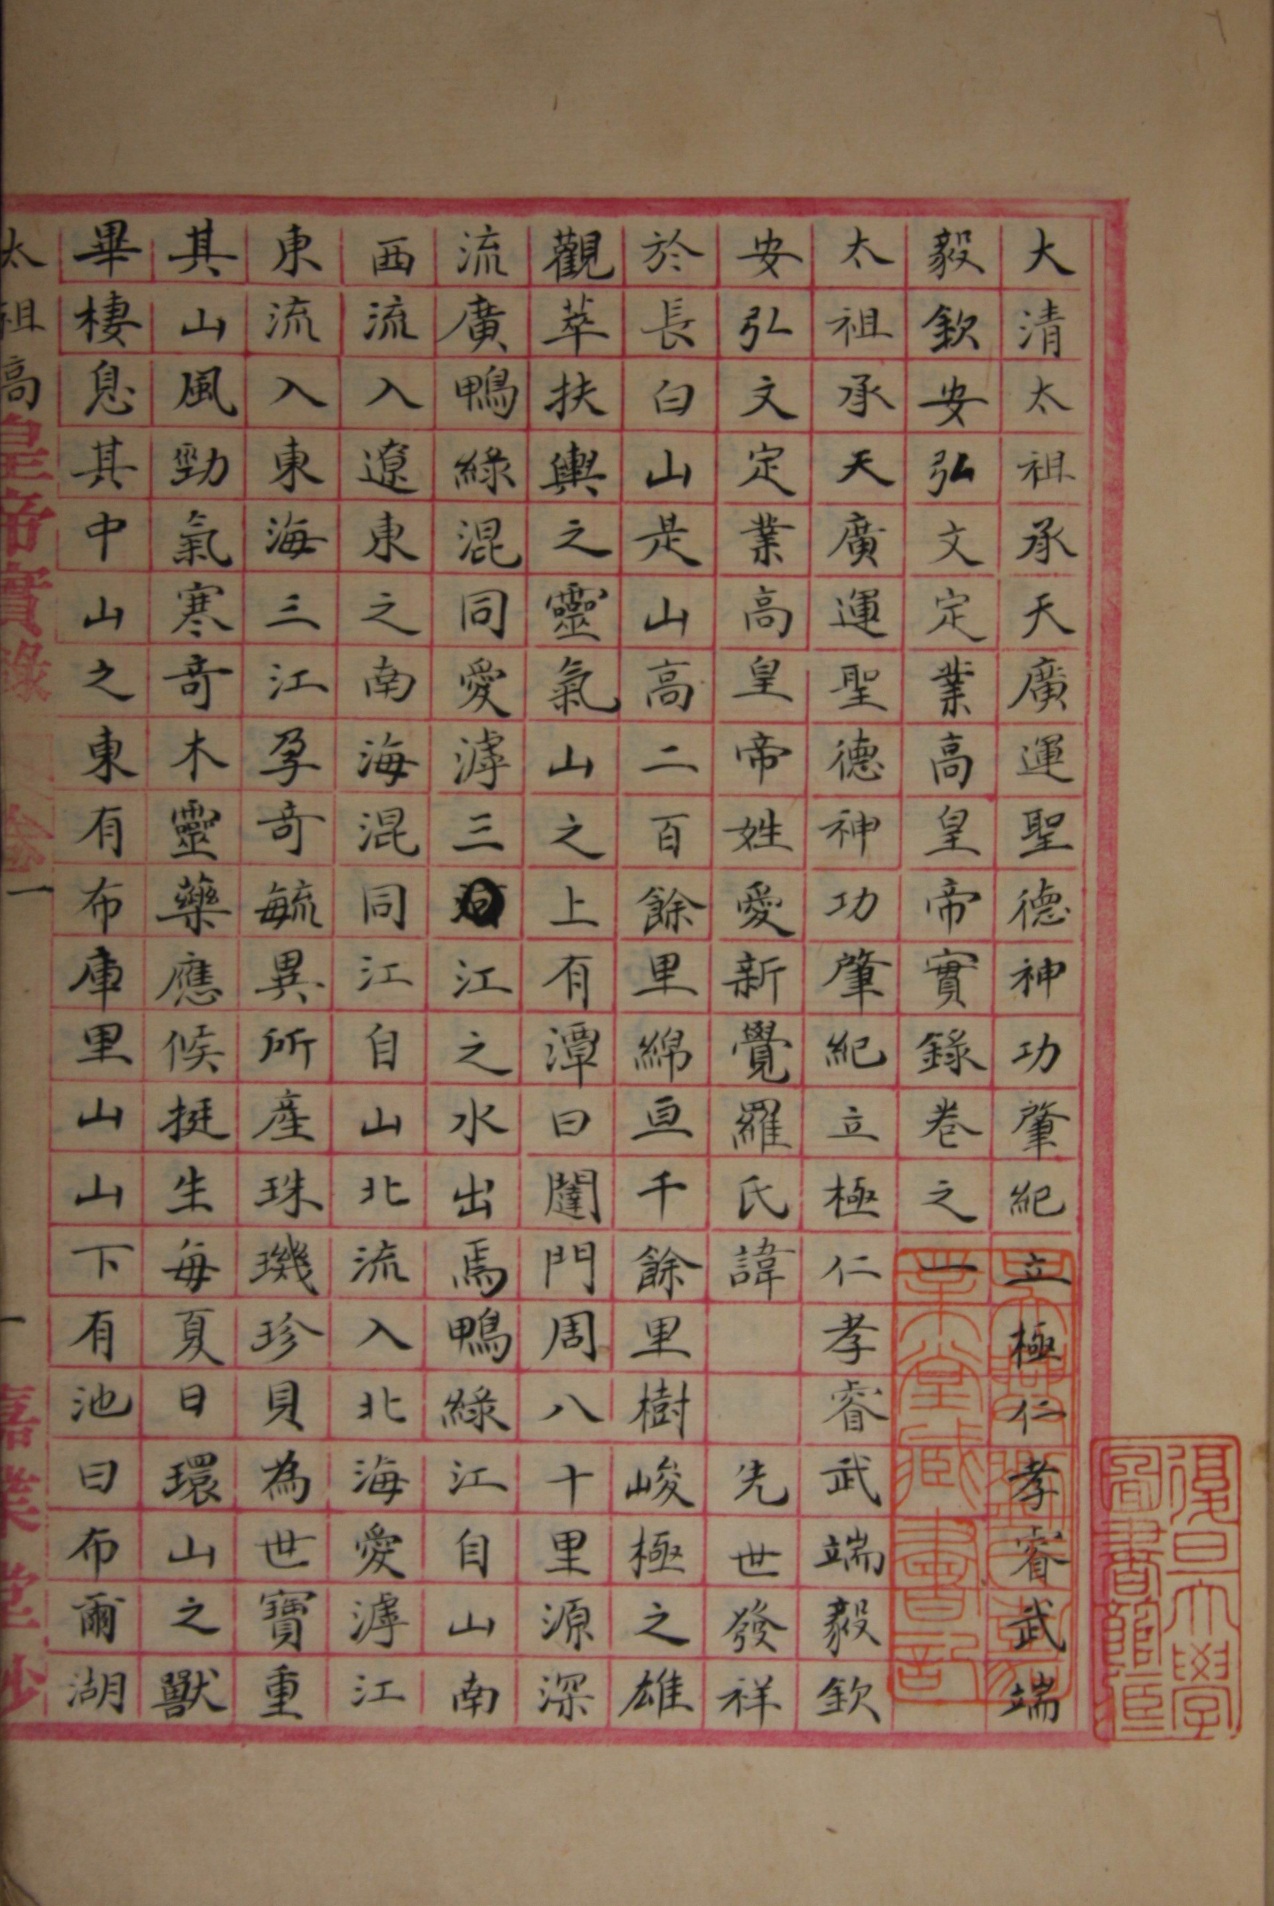 大清太祖承天廣運聖德神功肇紀立極仁孝睿武端
毅欽安弘文定業高皇帝實錄卷之一
太祖承天廣運聖德神功肇紀立極仁孝睿武端毅欽
安弘文定業高皇帝姓愛新覺羅氏諱 先世發祥
於長白山是山高二百餘里綿亘千餘里樹峻極之雄
觀萃扶輿之靈氣山之上有潭曰闥門周八十里源深
流廣鴨綠混同愛滹三江之水出焉鴨綠江自山南
西流入遼東之南海混同江自山北流入北海愛滹江
東流入東海三江孕奇毓異所產珠璣珍貝為世寶重
其山風勁氣寒奇木靈藥應候挺生每夏日環山之獸
畢棲息其中山之東有布庫里山山下有池曰布爾湖
太祖高皇帝實錄 卷一 一 嘉業堂鈔
復旦大學圖書館藏